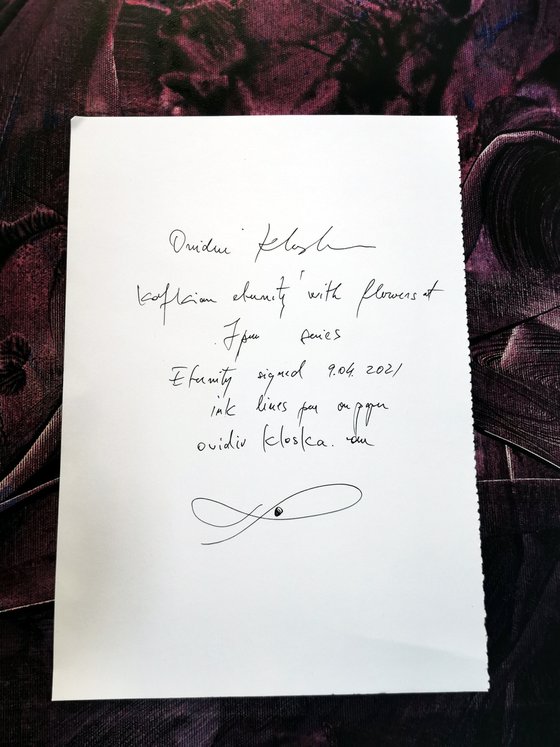 Ovidiu Kloska
Kafkian eternity with flowers at
7pm series
Eternity signed 9.04.2021
ink lines pen on paper
ovidiu kloska.